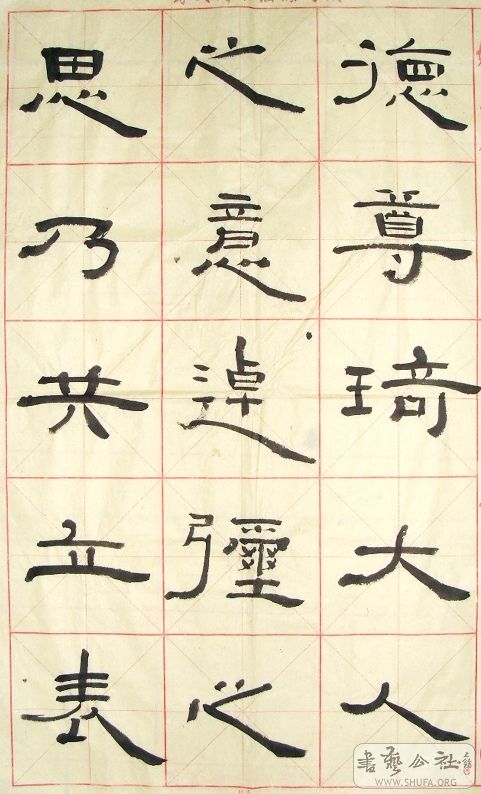 德尊琦大人
之意逴彌之
思乃共立表
書藝公社
WWW.SHUFA.ORG